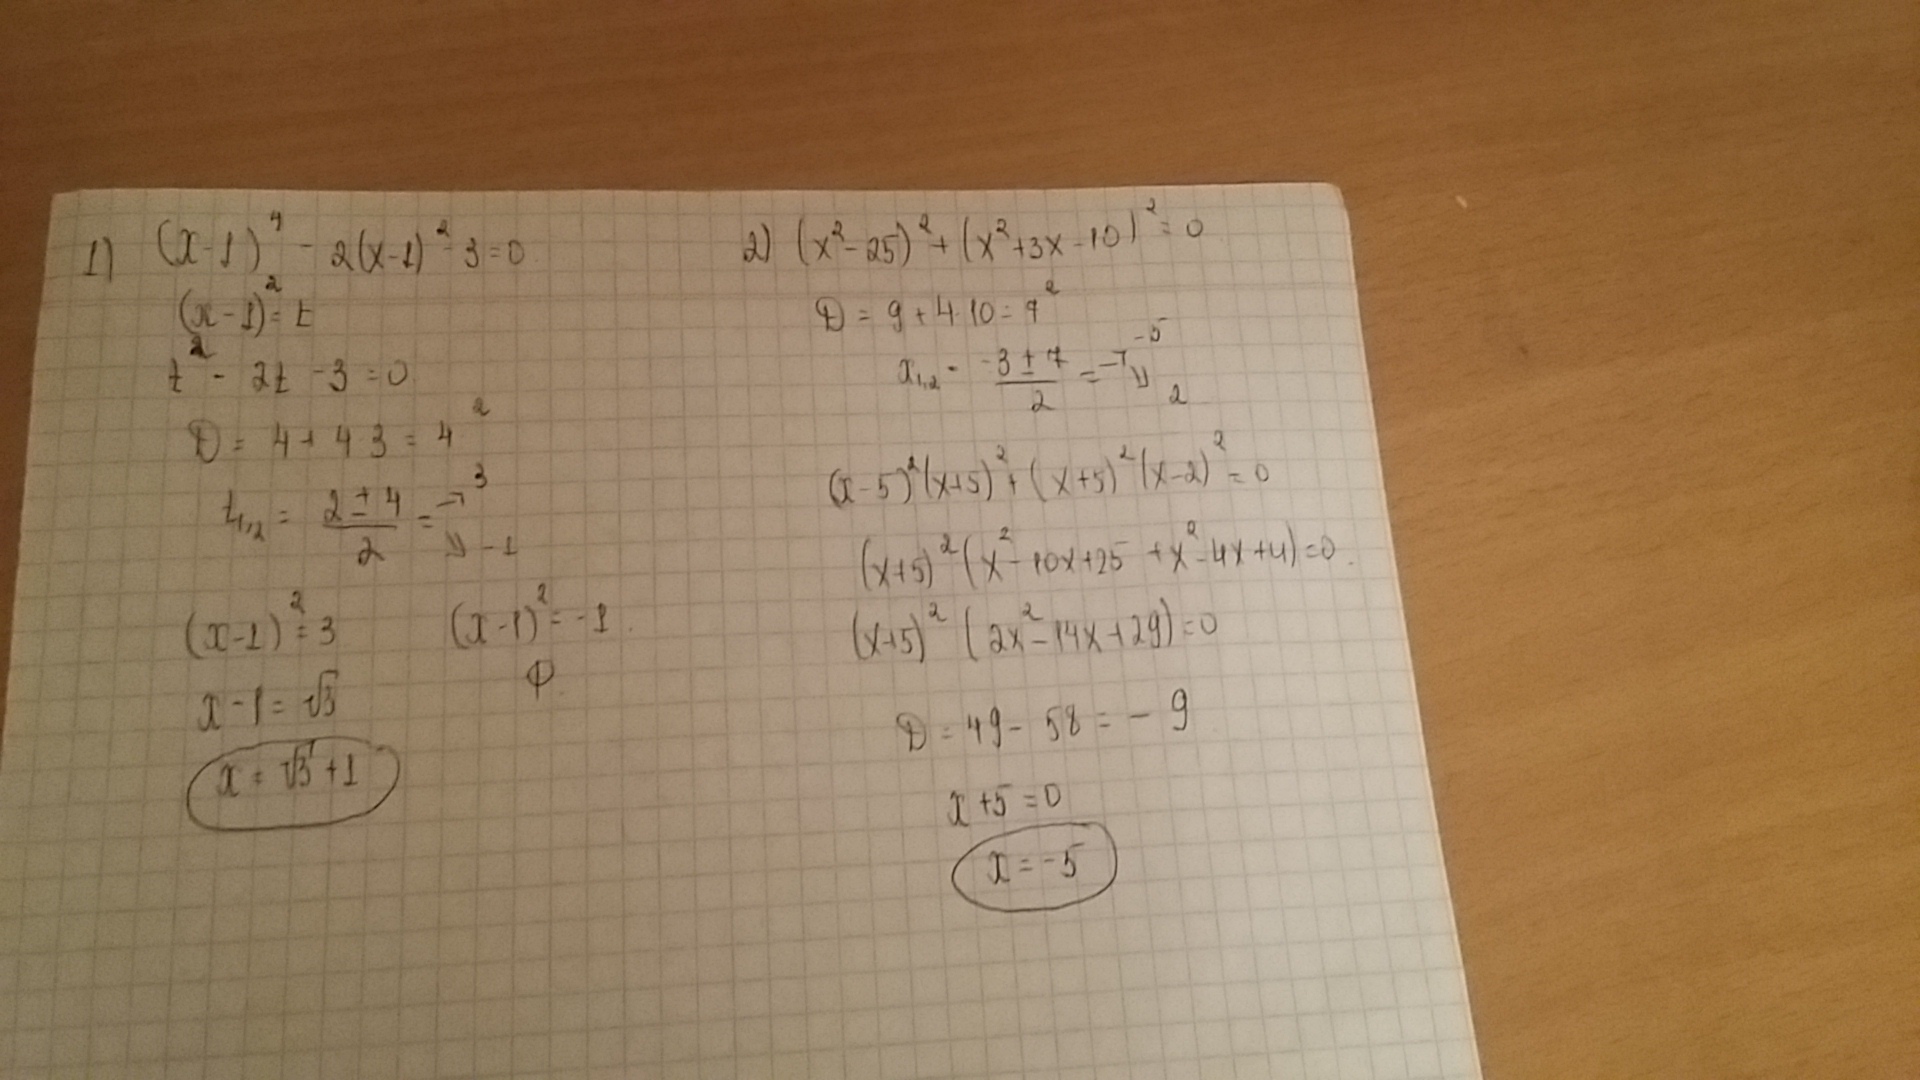 1) (x-1)⁴ - 2(x-1)² - 3 = 0
(x-1)² = t
t² - 2t - 3 = 0
D = 4 + 4·3 = 4²
t₁,₂ = (2 ± 4)/2 = → 3
↘ -1
(x-1)² = 3 (x-1)² = -1
∅
x - 1 = √3
x = √3 + 1
2) (x² - 25)² + (x² + 3x - 10)² = 0
D = 9 + 4·10 = 7²
x₁,₂ = (-3 ± 7)/2 = → -5
↘ 2
(x-5)²(x+5)² + (x+5)²(x-2)² = 0
(x+5)²(x² - 10x + 25 + x² - 4x + 4) = 0
(x+5)²(2x² - 14x + 29) = 0
D = 49 - 58 = -9
x + 5 = 0
x = -5